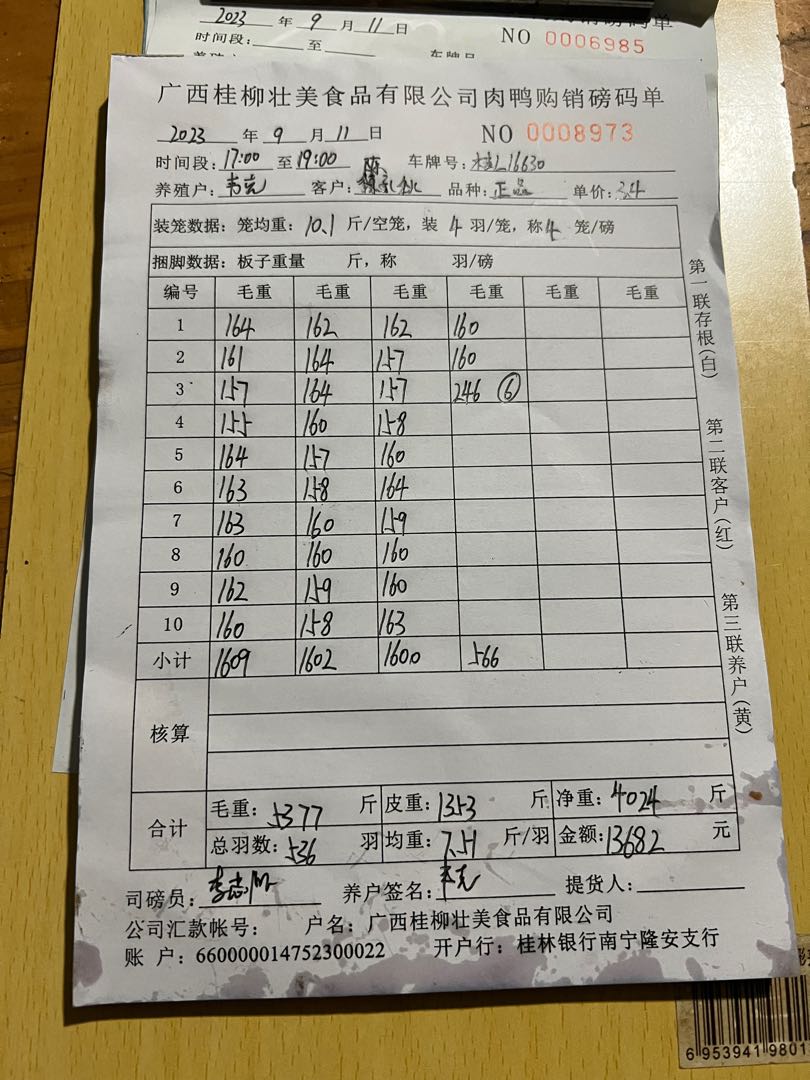 2023 年 9 月 11 日
NO 0006985
时间段: 至
广西桂柳壮美食品有限公司肉鸭购销磅码单
2023 年 9 月 11 日 NO 0008973
时间段: 17:00 至 19:00 车牌号: 桂L16630
养殖户: 韦克 客户: 陈 品种: 正品 单价: 3.4
装笼数据: 笼均重: 10.1 斤/空笼, 装 4 羽/笼, 称 4 笼/磅
捆脚数据: 板子重量 斤, 称 羽/磅
编号 毛重 毛重 毛重 毛重 毛重 毛重
1 164 162 162 160
2 161 164 157 160
3 157 164 157 246 ⑥
4 155 160 158
5 164 157 160
6 163 158 164
7 163 160 159
8 160 160 160
9 162 159 160
10 160 158 163
小计 1609 1602 1600 566
核算
合计
毛重: 5377 斤 皮重: 1353 斤 净重: 4024 斤
总羽数: 536 羽 均重: 7.51 斤/羽 金额: 13682 元
司磅员: 养户签名: 韦克 提货人:
公司汇款帐号: 户名: 广西桂柳壮美食品有限公司
账 户: 660000014752300022 开户行: 桂林银行南宁隆安支行
第一联存根(白)
第二联客户(红)
第三联养户(黄)
6 953941 9801